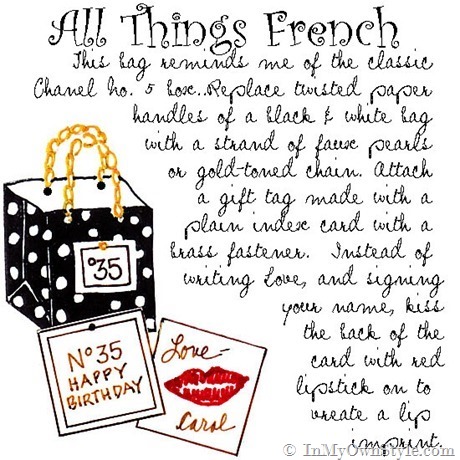 All Things French
This bag reminds me of the classic
Chanel No. 5 box..Replace twisted paper
handles of a black & white bag
with a strand of faux pearls
or gold-toned chain. Attach
a gift tag made with a
plain index card with a
brass fastener. Instead of
writing Love, and signing
your name, kiss
the back of the
card with red
lipstick on to
vreate a lip
imprint.
°35
N°35
HAPPY
BIRTHDAY
Love-
Carol
© InMyOwnStyle.com